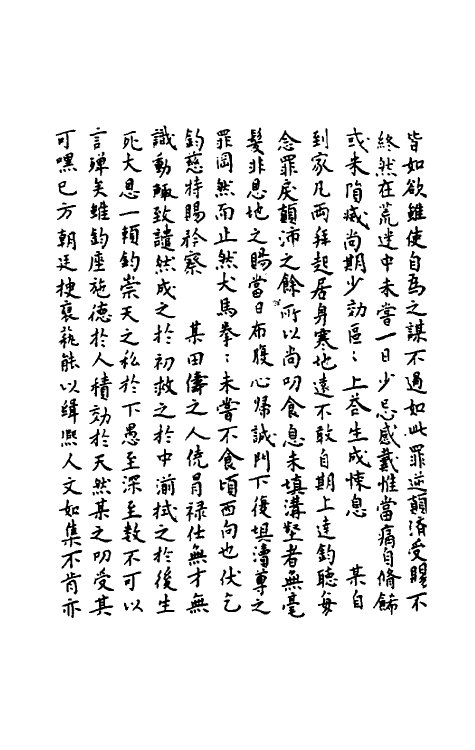 皆如欲雖使自為之謀不過如此罪逆顛隮受賜不
終然在荒迷中未嘗一日少忘感戴惟當痛自脩飾
或未隕滅尚期少効區區上荅生成悚息　某自
到家凡兩拜起居身寒地遠不敢自期上達鈞聽每
念罪戾顛沛之餘所以尚叨食息未填溝壑者無毫
髮非恩地之賜當日布腹心歸誠門下後塤濤尊之
罪罔然而止然犬馬拳拳未嘗不食頃西向也伏乞
鈞慈特賜矜察　某田儔之人僥冒祿仕無才無
識動輒致讀然成之於初救之於中湔拭之於後生
死大恩一賴鈞崇天之私於下愚至深至敎不可以
言殫矣雖鈞座施德於人積効於天然某之叨受其
可嘿已方朝廷搜裒執能以緝熙人文如集不肯亦